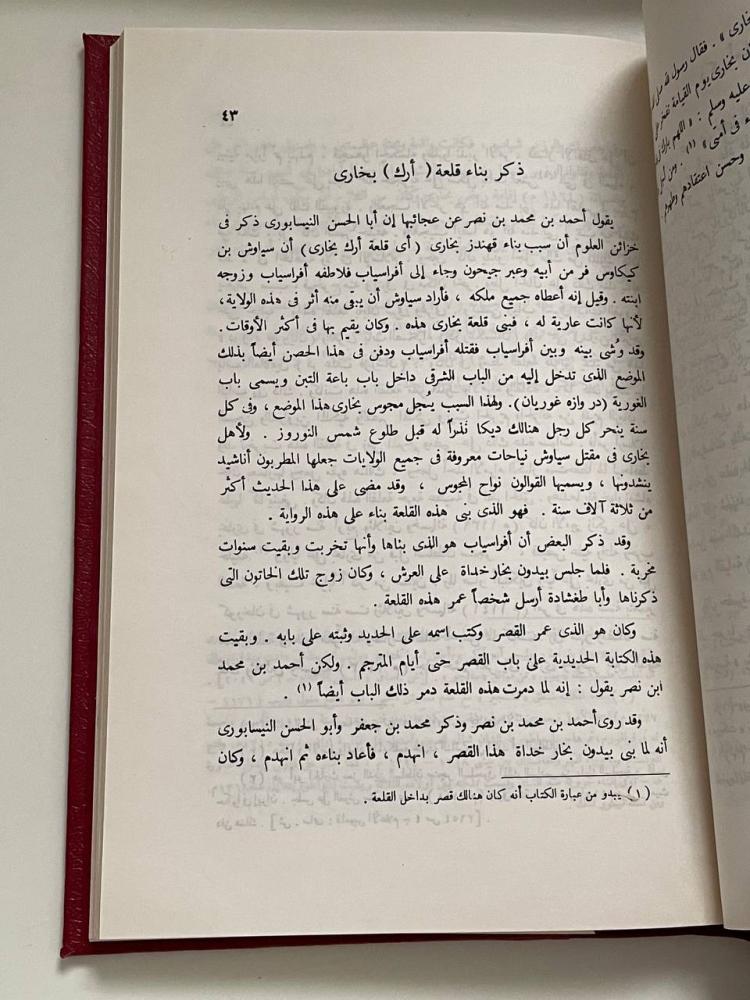 ٤٣
ذكر بناء قلعة ( أرك ) بخارى
يقول أحمد بن محمد بن نصر عن عجائبها إن أبا الحسن النيسابورى ذكر فى
خزائن العلوم أن سبب بناء قهندز بخارى ( أى قلعة أرك بخارى ) أن سياوش بن
كيكاوس فر من أبيه وعبر جيحون وجاء إلى أفراسياب فلاطفه أفراسياب وزوجه
ابنته . وقيل إنه أعطاه جميع ملكه ، فأراد سياوش أن يبقى منه أثر فى هذه الولاية،
لأنها كانت عارية له ، فبنى قلعة بخارى هذه . وكان يقيم بها فى أكثر الأوقات.
وقد وُشى بينه وبين أفراسياب فقتله أفراسياب ودفن فى هذا الحصن أيضاً بذلك
الموضع الذى تدخل إليه من الباب الشرقى داخل باب باعة التبن ويسمى باب
الغورية (در وازه غوريان). ولهذا السبب يُجل مجوس بخارى هذا الموضع ، وفى كل
سنة ينحر كل رجل هنالك ديكا نَذراً له قبل طلوع شمس النوروز . ولأهل
بخارى فى مقتل سياوش نياحات معروفة فى جميع الولايات جعلها المطربون أناشيد
ينشدونها ، ويسميها القوالون نواح المجوس ، وقد مضى على هذا الحديث أكثر
من ثلاثة آلاف سنة . فهو الذى بنى هذه القلعة بناء على هذه الرواية .
وقد ذكر البعض أن أفراسياب هو الذى بناها وأنها تخربت وبقيت سنوات
مخربة . فلما جلس بيدون بخار خداة على العرش ، وكان زوج تلك الخاتون التى
ذكرناها وأبا طغشادة أرسل شخصاً عمر هذه القلعة .
وكان هو الذى عمر القصر وكتب اسمه على الحديد وثبته على بابه . وبقيت
هذه الكتابة الحديدية على باب القصر حتى أيام المترجم . ولكن أحمد بن محمد
ابن نصر يقول : إنه لما دمرت هذه القلعة دمر ذلك الباب أيضاً (١) .
وقد روى أحمد بن محمد بن نصر وذكر محمد بن جعفر وأبو الحسن النيسابورى
أنه لما بنى بيدون بخار خداة هذا القصر ، انهدم ، فأعاد بناءه ثم انهدم ، وكان
(١) يبدو من عبارة الكتاب أنه كان هنالك قصر بداخل القلعة .
فقال رسول الله صلى
بخارى يوم القيامة
عليه وسلم : « اللهم بارك
فى أمتى » (١) .
وحسن اعتقادهم